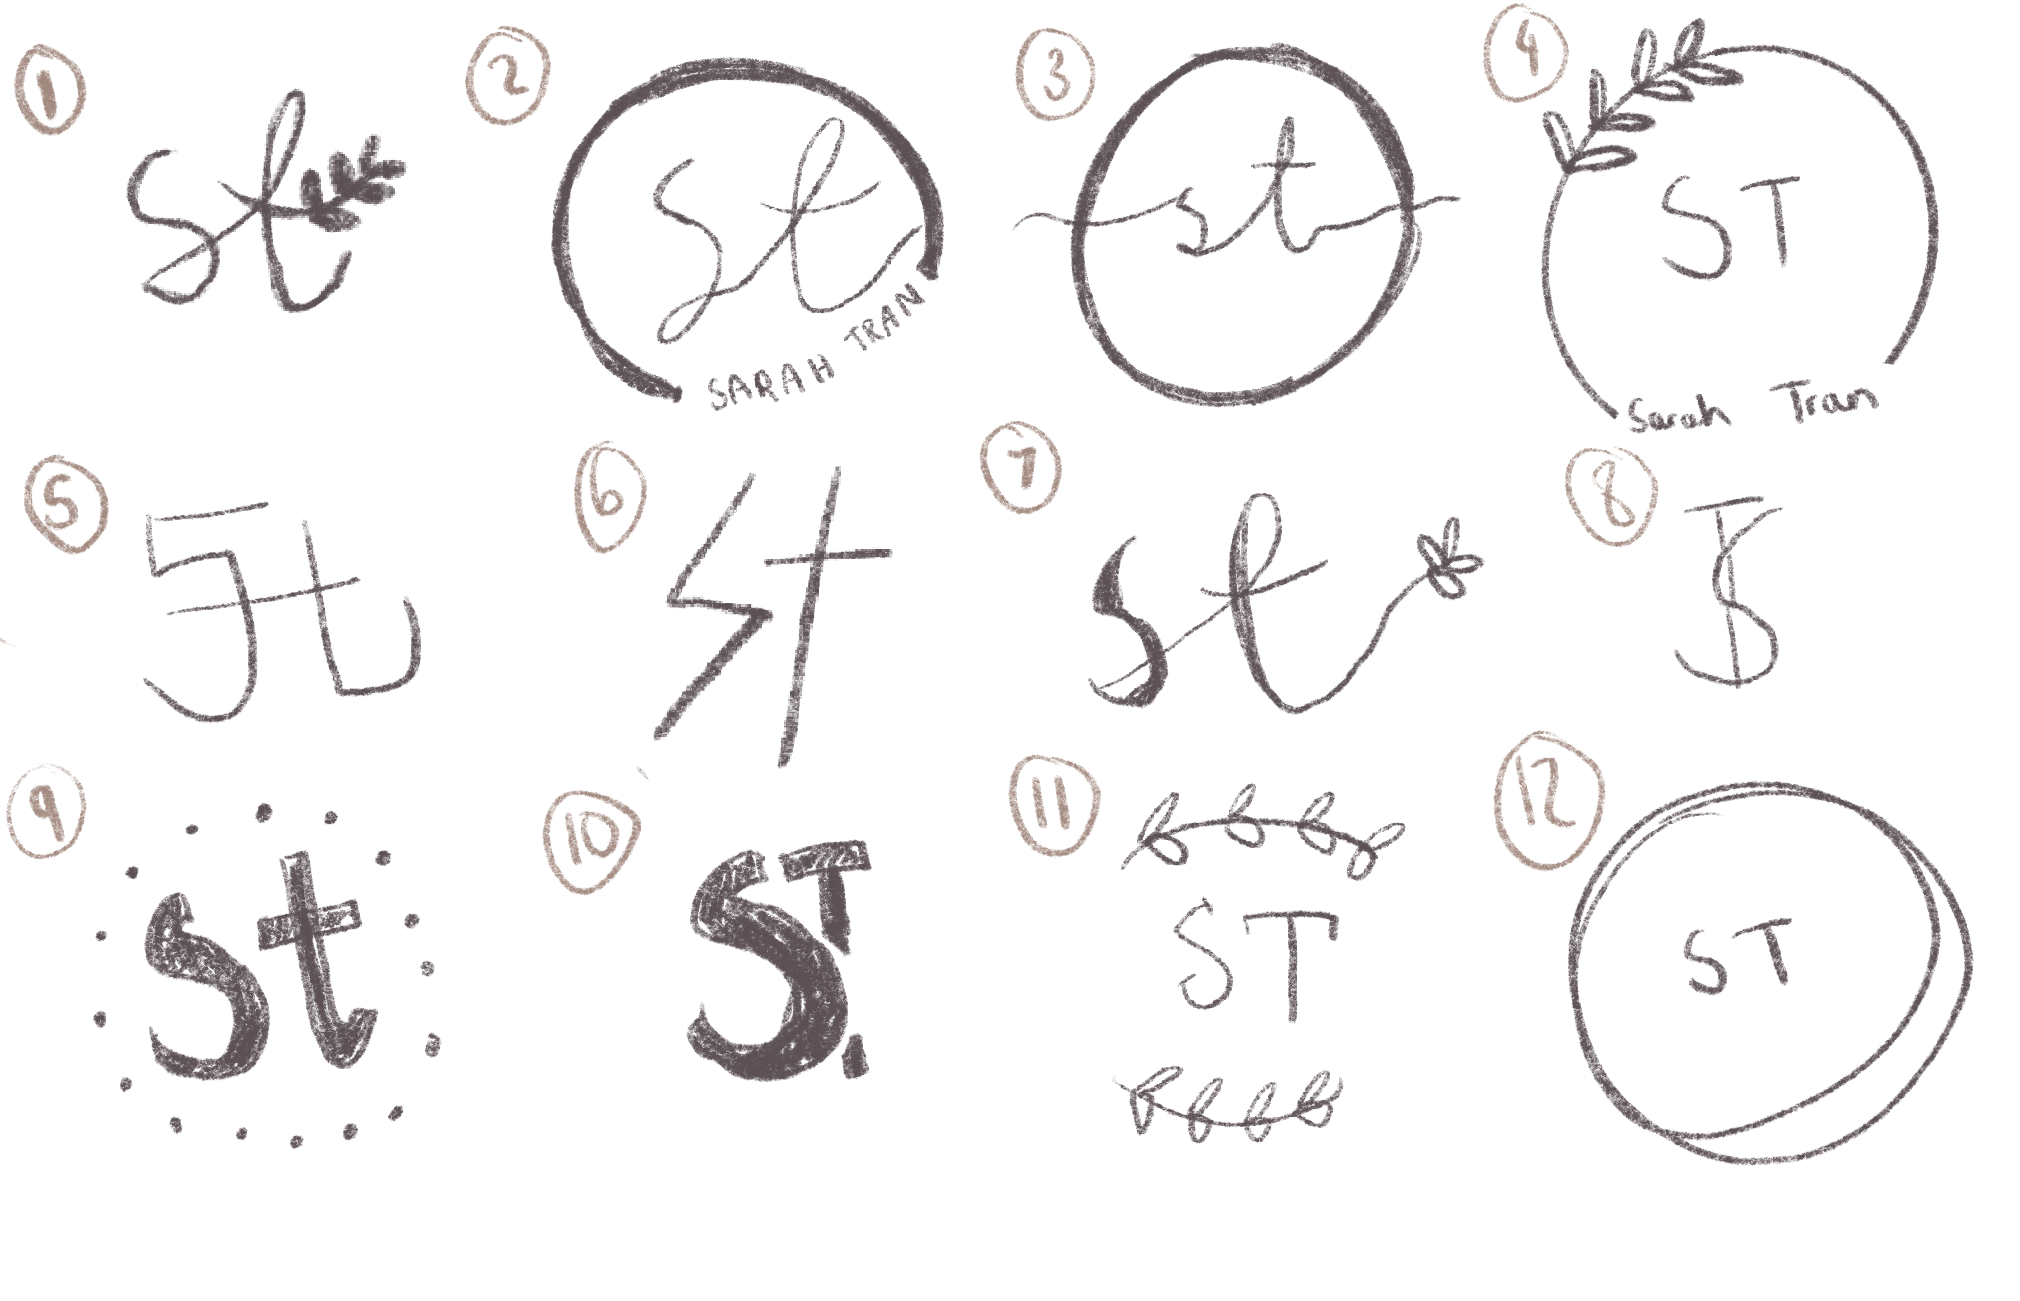 1
st
2
st
SARAH TRAN
3
st
4
ST
Sarah Tran
5
St
6
St
7
st
8
ST
9
st
10
ST.
11
ST
12
ST